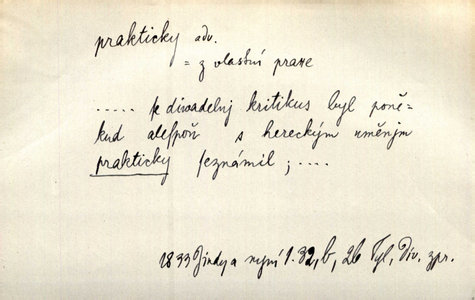 prakticky adv.
= z vlastní praxe
..... se diwadelnj kritikus byl poně=
kud alespoň s hereckým uměnjm
prakticky seznámil; ....
1833 Jindy a nynj 1. 32, b, 26 Tyl, Div. zpr.